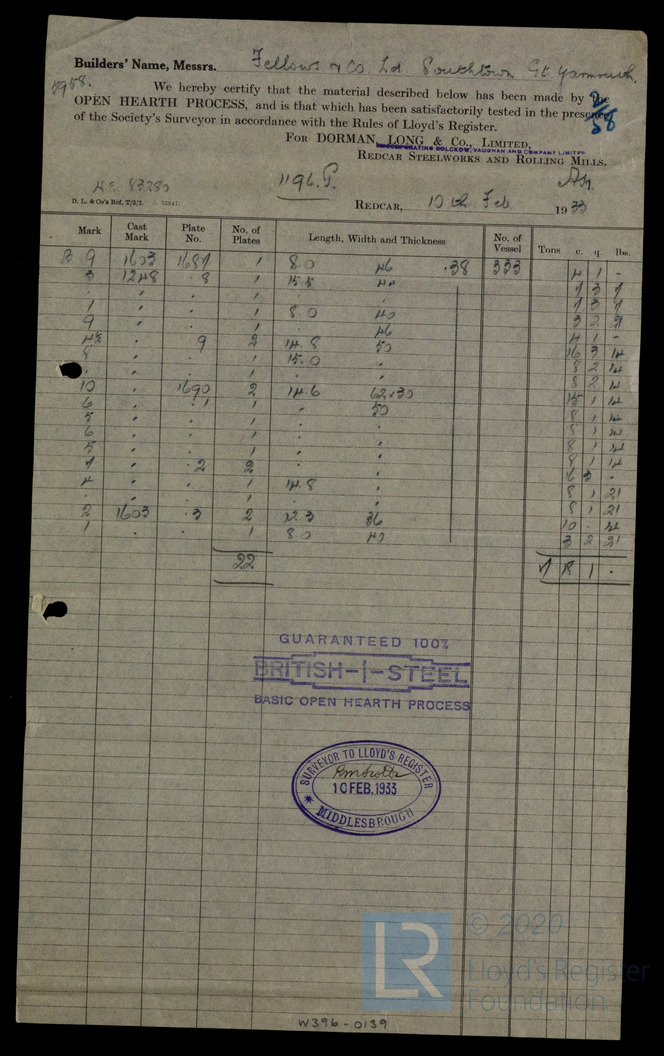 Builders' Name, Messrs. Fellows & Co Ld Southtown Gt Yarmouth.
5958.
We hereby certify that the material described below has been made by the
OPEN HEARTH PROCESS, and is that which has been satisfactorily tested in the presence
of the Society's Surveyor in accordance with the Rules of Lloyd's Register.
2/58
FOR DORMAN, LONG & CO., LIMITED,
INCORPORATING BOLCKOW, VAUGHAN AND COMPANY LIMITED
REDCAR STEELWORKS AND ROLLING MILLS.
1196.P.
D. L. & Co's Ref. T/3/2.
REDCAR, 10th Feb 1933
Mark Cast Mark Plate No. No. of Plates Length, Width and Thickness No. of Vessel Tons c. q. lbs.
B 9 1603 1687 1 8.0 46 .38 333 4 1 -
3 1248 8 1 15.5 40 7 3 7
. . . 1 . . 7 3 7
1 . . 1 8 0 40 3 2 7
9 . . 1 . 46 4 1 -
. 9 2 14.8 50 16 3 14
8 . . 1 15.0 . 8 2 14
. . . 1 . . 8 2 14
10 . 1690 2 14.6 62.30 15 1 14
6 . 1 1 . 50 8 1 14
5 . . 1 . . 8 1 14
6 . . 1 . . 8 1 14
5 . . 1 . . 8 1 14
7 . 2 2 . . 6 3 .
4 . . 1 14.8 . 8 1 21
. . . 1 . . 8 1 21
2 1603 3 2 12.3 36 10 . 14
1 . . 1 8 0 40 3 2 21
22 7 18 1 .
GUARANTEED 100%
BRITISH-I-STEEL
BASIC OPEN HEARTH PROCESS
SURVEYOR TO LLOYD'S REGISTER
10 FEB. 1933
MIDDLESBROUGH
LR
© 2020
Lloyd's Register
Foundation
W396-0139